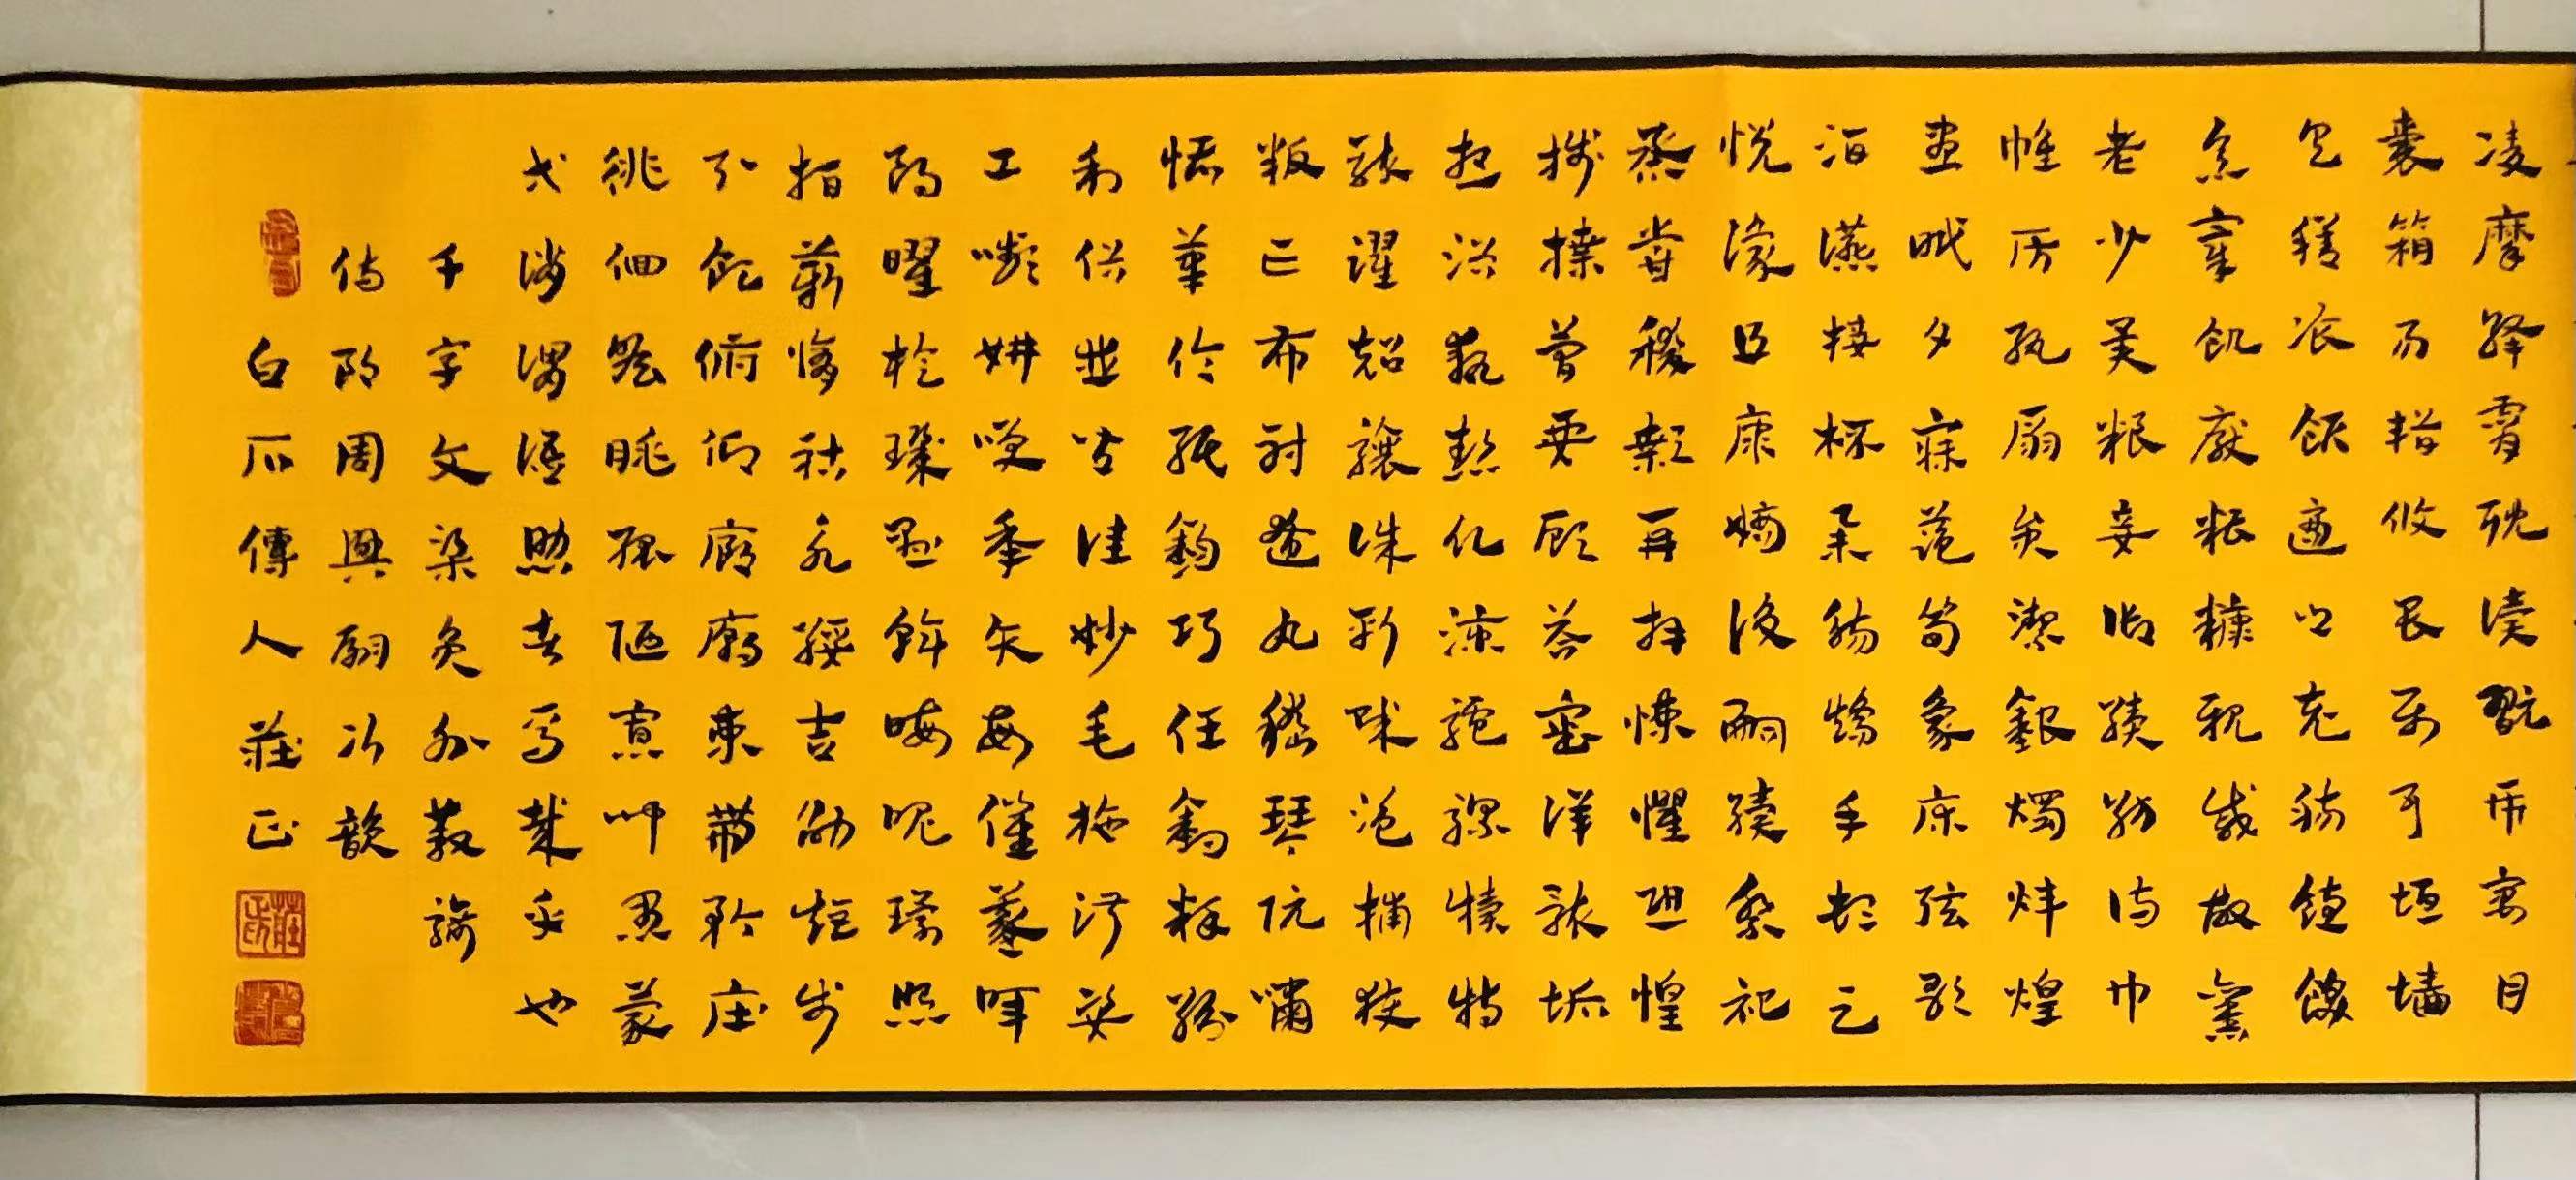 凌摩絳霄耽讀翫市寓目
囊箱易輶攸畏屬耳垣墻
具膳飡飯適口充腸飽飫
烹宰飢厭糟糠親戚故舊
老少異粮妾御績紡侍巾
帷房紈扇圓潔銀燭煒煌
晝眠夕寐藍笋象床弦歌
酒讌接杯舉觴矯手頓足
悅豫且康嫡後嗣續祭祀
蒸嘗稽顙再拜悚懼恐惶
牋牒簡要顧答審詳骸垢
想浴執熱願涼驢騾犢特
駭躍超驤誅斬賊盜捕獲
叛亡布射遼丸嵇琴阮嘯
恬筆倫紙鈞巧任釣釋紛
利俗並皆佳妙毛施淑姿
工嚬妍笑年矢每催羲暉
朗曜旋璣懸斡晦魄環照
指薪修祜永綏吉劭矩步
引領俯仰廊廟束帶矜庄
徘徊瞻眺孤陋寡聞愚蒙
等誚謂語助者焉哉乎也
千字文梁員外散騎
侍郎周興嗣次韻
白石傳人莊正